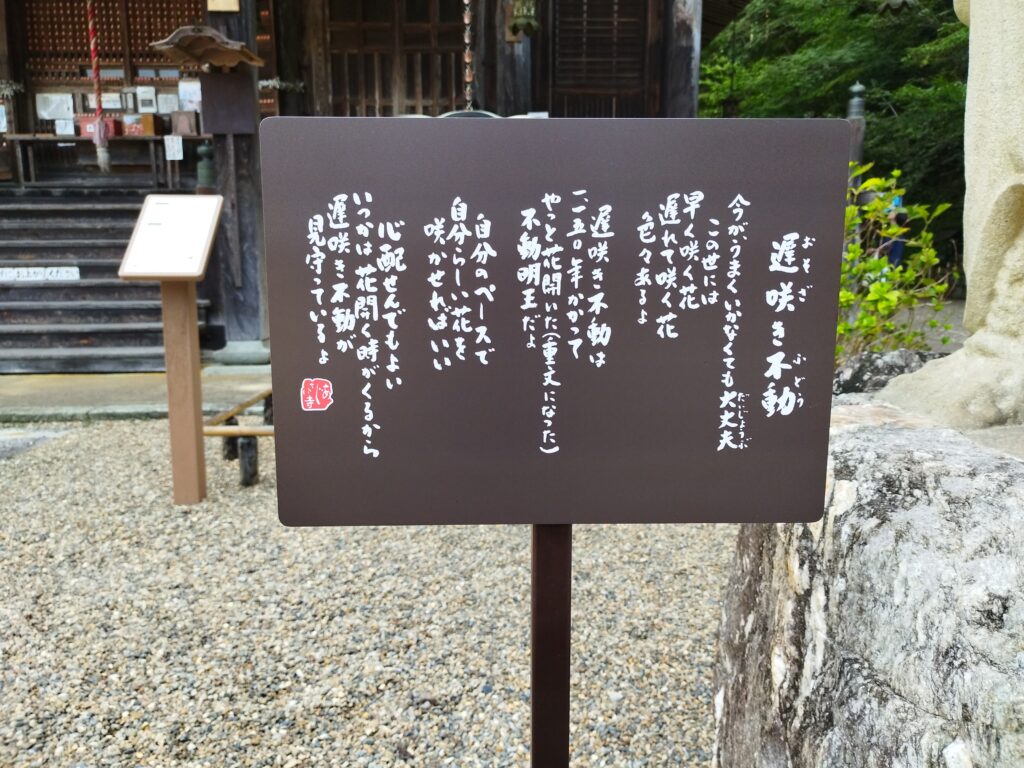 遅咲き不動
おそざ
ふどう
今が、うまくいかなくても大丈夫
だいじょうぶ
この世には
早く咲く花
遅れて咲く花
色々あるよ
遅咲き不動は
一一五〇年かかって
やっと花開いた（重文になった）
不動明王だよ
自分のペースで
自分らしい花を
咲かせればいい
心配せんでもよい
いつかは花開く時がくるから
遅咲き不動が
見守っているよ